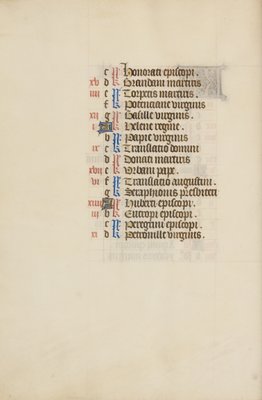 c kl Honorati episcopi .
xv d kl Brandani martiris
iiii e kl Torpetis martiris .
f kl Potenciane virginis
xii g kl Basille virginis .
i A kl Helene regine .
b kl Papie virginis
ix c kl Translatio domini
d kl Donati martiris
xvii e kl Urbani pape .
vi f kl Translatio augustini .
g kl Seraphionis presbiteri
xiiii A kl Huberti episcopi .
iii b kl Eutropi episcopi .
c kl Peregrini episcopi .
xi d kl Petronille virginis .